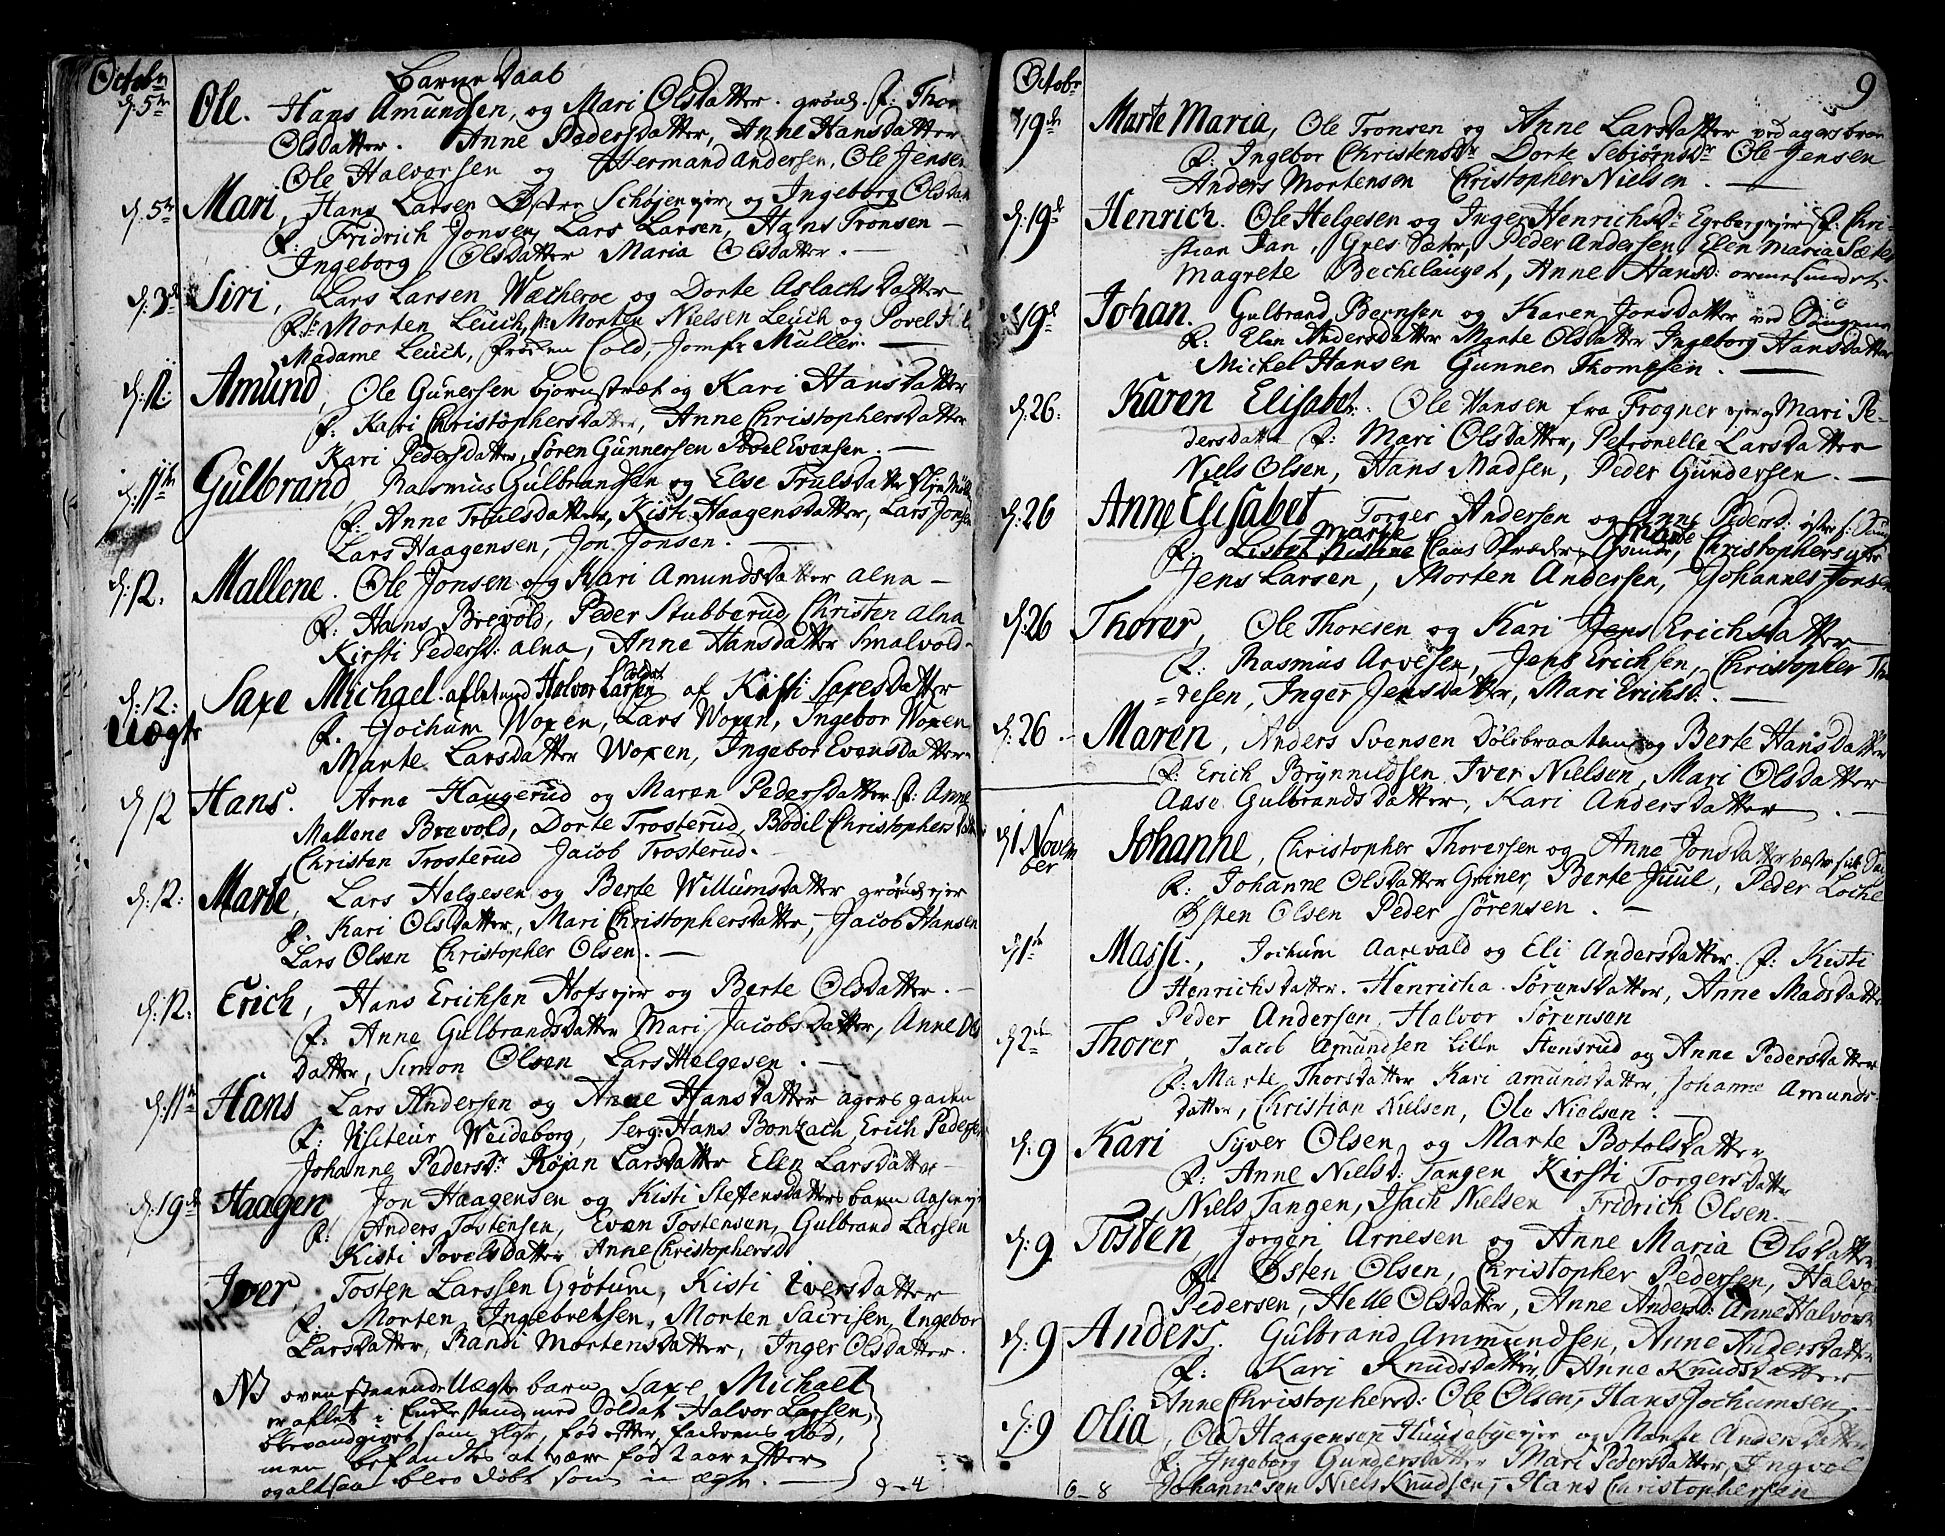 Octobr
Barne Daab
d: 5te Ole. Hans Amundsen, og Mari Olsdatter. grönd. F: Thor
Olsdatter. Anne Pedersdatter, Anne Hansdatter
Ole Halvorsen og Hermand Andersen, Ole Jensen
d: 5te Mari, Hans Larsen Østre Schøjen ejer, og Ingeborg Olsdatt
F: Fridrich Jonsen, Lars Larsen, Hans Tronsen —
Ingeborg Olsdatter Maria Olsdatter. —
d: 3d Siri, Lars Larsen Wæcheroe og Dorte Aslachsdatter
F: Hr Morten Leuch, Hr Morten Nielsen Leuch og Povel
Madame Leuch, frøken Cold, Jomfr Muller. —
d: 12: Amund, Ole Gunersen bjornstræt og Kari Hansdatter
F: Kari Christophersdatter, Anne Christophersdatter
Kari Pedersdatter, Søren Gunnersen Povel Evensen. —
d: 11te Gulbrand, Rasmus Gulbrandsen og Else Trulsdatter
F: Anne Trulsdatter, Kisti Haagensdatter, Lars Jonsen
Lars Haagensen, Jon Jonsen. —
d: 12. Mallene. Ole Jonsen og Kari Amundsdatter alna —
F: Hans Brevold, Peder Stubberud, Christen alna
Kirsti Pedersd: alna, Anne Hansdatter Smalvold.
d: 12: Saxe Michael aflet ved Soldat Halvor Larsen af Kisti Saxesdatter
Uægte F. Jochum Woxen, Lars Woxen, Ingebor Woxen
Marte Larsdatter Woxen, Ingebor Evensdatter
d 12 Hans. Arne Haugerud og Maren Pedersdatter F: Anne
Mallene Brevold, Dorte Trosterud, Bodil Christophersdatt
Christen Trosterud Jacob Trosterud.
d: 12: Marte, Lars Helgesen og Berte Willumsdatter grönds ejer
F. Kari Olsdatter, Mari Christophersdatter, Jacob Hansen
Lars Olsen Christopher Olsen. —
d: 12: Erich, Hans Erichsen Hofs ejer og Berte Olsdatter. —
F: Anne Gulbrandsdatter Mari Jacobsdatter, Anne Ols
datter, Simon Olsen Lars Helgesen. —
d: 11te Hans Lars Andersen og Anne Hansdatter agers gaden
F: Visiteur Weideborg, Serg: Hans Bontzach, Erich Pedersen
Johanne Pedersdr Røjan Larsdatter Elen Larsdatter —
d: 19d Haagen Jon Haagensen og Kisti Steffensdatters barn
F: Anders Tostensen, Even Tostensen, Gulbrand Larsen
Kisti Povelsdatter Anne Christophersd.
Iver, Tosten Larssen Grötum, Kisti Iversdatter
F. Morten Ingebretsen, Morten Sacrisen, Ingebor
Larsdatter, Randi Mortensdatter, Inger Olsdatter.
NB ovenstaaende Uægte barn Saxe Michael
er aflet i Enkestand med Soldat Halvor Larsen,
blev angivet som ægte, fød efter faderens død,
men befandtes at være fød 2 aar efter
og altsaa blev døbt som uægte. —
9-4
Octobr
9
19de Marte Maria, Ole Tronsen og Anne Larsdatter ved agers broe
F: Ingebor Christensdr Dorte Sebiørnsdr Ole Jensen
Anders Mortensen Christopher Nielsen. —
d: 19d Henrich. Ole Helgesen og Inger Henrichsdr Egeberg ejer F: Chri-
stian Jan, Gres Sæter, Peder Andersen, Elen Maria Sæter
Magrete Bechelauget, Anne Hansd: ormesundet.
19d Johan. Gulbrand Bernsen og Karen Jonsdatter ved
F: Elen Andersdatter Marte Olsdatter Ingeborg Hansdatter
Michel Hansen Gunner Thompsen. —
d: 26: Karen Elisabet: Ole Hansen fra Frogner ejer og Mari Pe-
dersdatter F: Mari Olsdatter, Petronelle Larsdatter
Niels Olsen, Hans Madsen, Peder Gundersen. —
d: 26 Anne Elisabet Torger Andersen og Anne Pedersd:
F: Marte Claus Christophers
Jens Larsen, Morten Andersen, Johannes Jonsen
d: 26 Thorer, Ole Thoresen og Kari Jens Erichsdatter
F: Rasmus Arvesen, Jens Erichsen, Christopher Tho
-resen, Inger Jensdatter, Mari Erichsd: —
d: 26 Maren, Anders Svensen Dölebraaten og Berte Hansdatter
F: Erich Brynnildsen Iver Nielsen, Mari Olsdatter
Aase Gulbrandsdatter, Kari Andersdatter —
d 1 Novem
ber Johanne, Christopher Thoresen og Anne Jonsdatter
F: Johanne Olsdatter Griner, Berte Juul, Peder Loche
Østen Olsen Peder Sörensen. —
d 1te Massi., Jochum Aarevald og Eli Andersdatter. F: Kisti
Henrichsdatter. Henricha Sörensdatter, Anne Madsdatter
Peder Andersen Halvor Sörensen
d 2de Thorer, Jacob Amundsen Lille Stensrud og Anne Pedersdatter
F: Marte Thorsdatter Kari Amundsdatter, Johanne Amunds-
datter, Christian Nielsen, Ole Nielsen.
d: 9 Kari Syver Olsen og Marte Botolsdatter
F: Anne Nielsd: Tangen Kirsti Torgersdatter
Niels Tangen, Isach Nielsen Fridrich Olsen. —
d: 9 Tosten, Jorgen Arnesen og Anne Maria Olsdatter
F: Østen Olsen, Christopher Pedersen, Halvor
Pedersen, Helle Olsdatter, Anne Andersd: Anne Halvors
d: 9 Anders. Gulbrand Ammundsen, Anne Andersdatter
F: Kari Knudsdatter, Anne Knudsdatter
Anne Christophersd: Ole Olsen, Hans Jochumsen,
d: 9 Olia, Ole Haagensen Huusebye ejer og Marte Andersdatter
F: Ingeborg Gundersdatter Mari Pedersdatter, Ingvol
6-8 Johannesen Niels Knudsen, Hans Christophersen